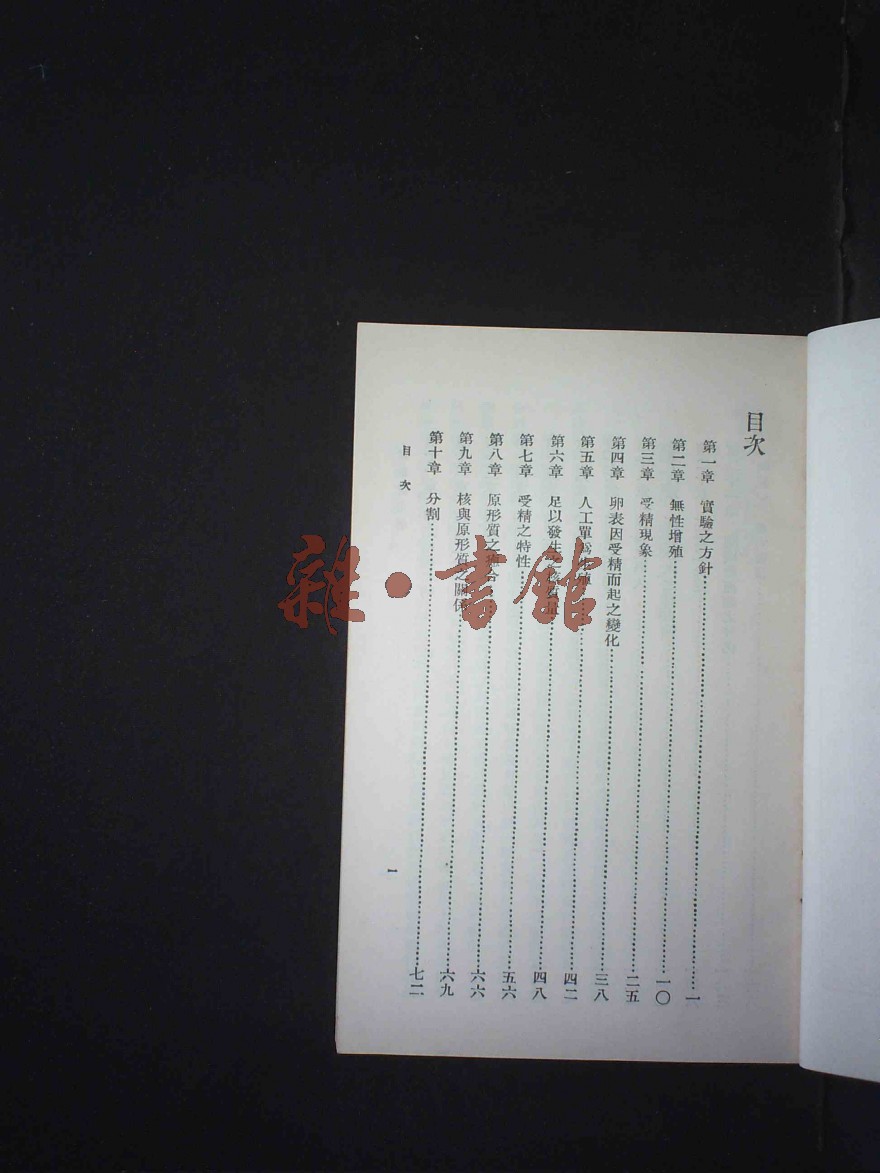 目次
第一章 實驗之方針……一
第二章 無性增殖……一〇
第三章 受精現象……二五
第四章 卵表因受精而起之變化……三八
第五章 人工單爲生殖……四二
第六章 足以發生之……四八
第七章 受精之特性……五六
第八章 原形質之合……六六
第九章 核與原形質之關係……六九
第十章 分割……七二
目次
一
雜·書館